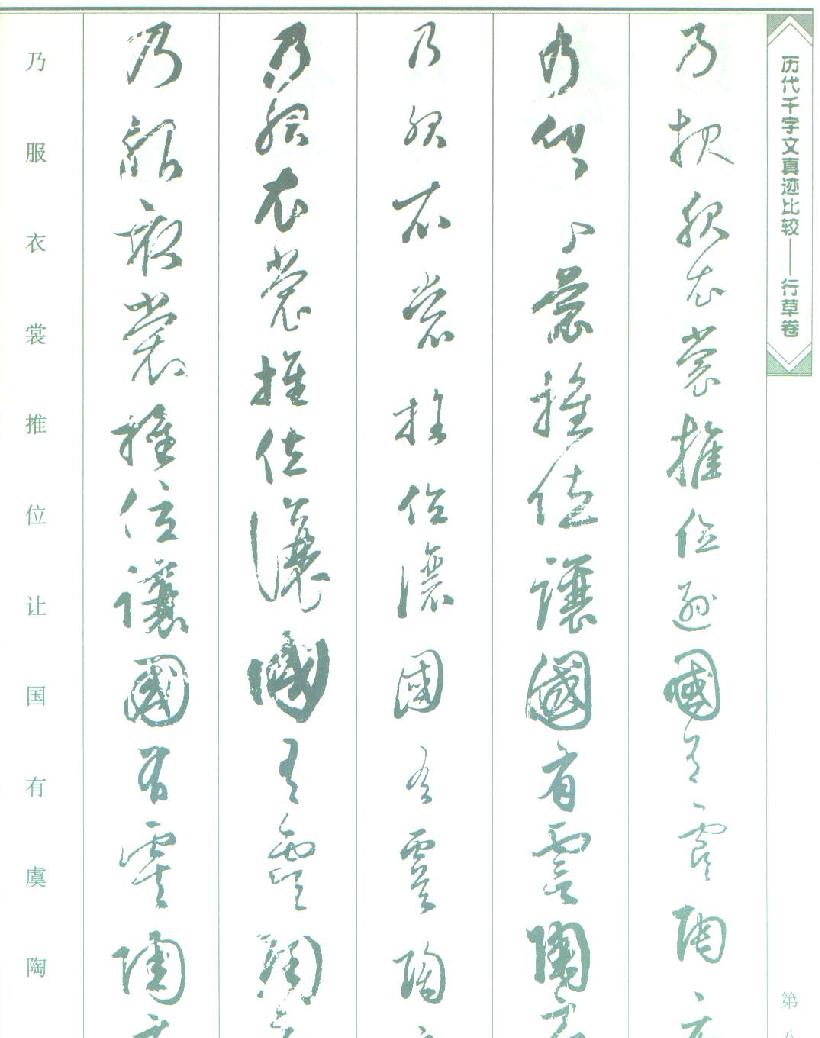 历代千字文真迹比较——行草卷
第
乃服衣裳推位逊國有虞陶
乃服裳推位讓國有虞陶
乃服衣裳推位讓國有虞陶
乃服衣裳推位讓國有虞陶
乃服衣裳推位讓國有虞陶
乃服衣裳推位让国有虞陶